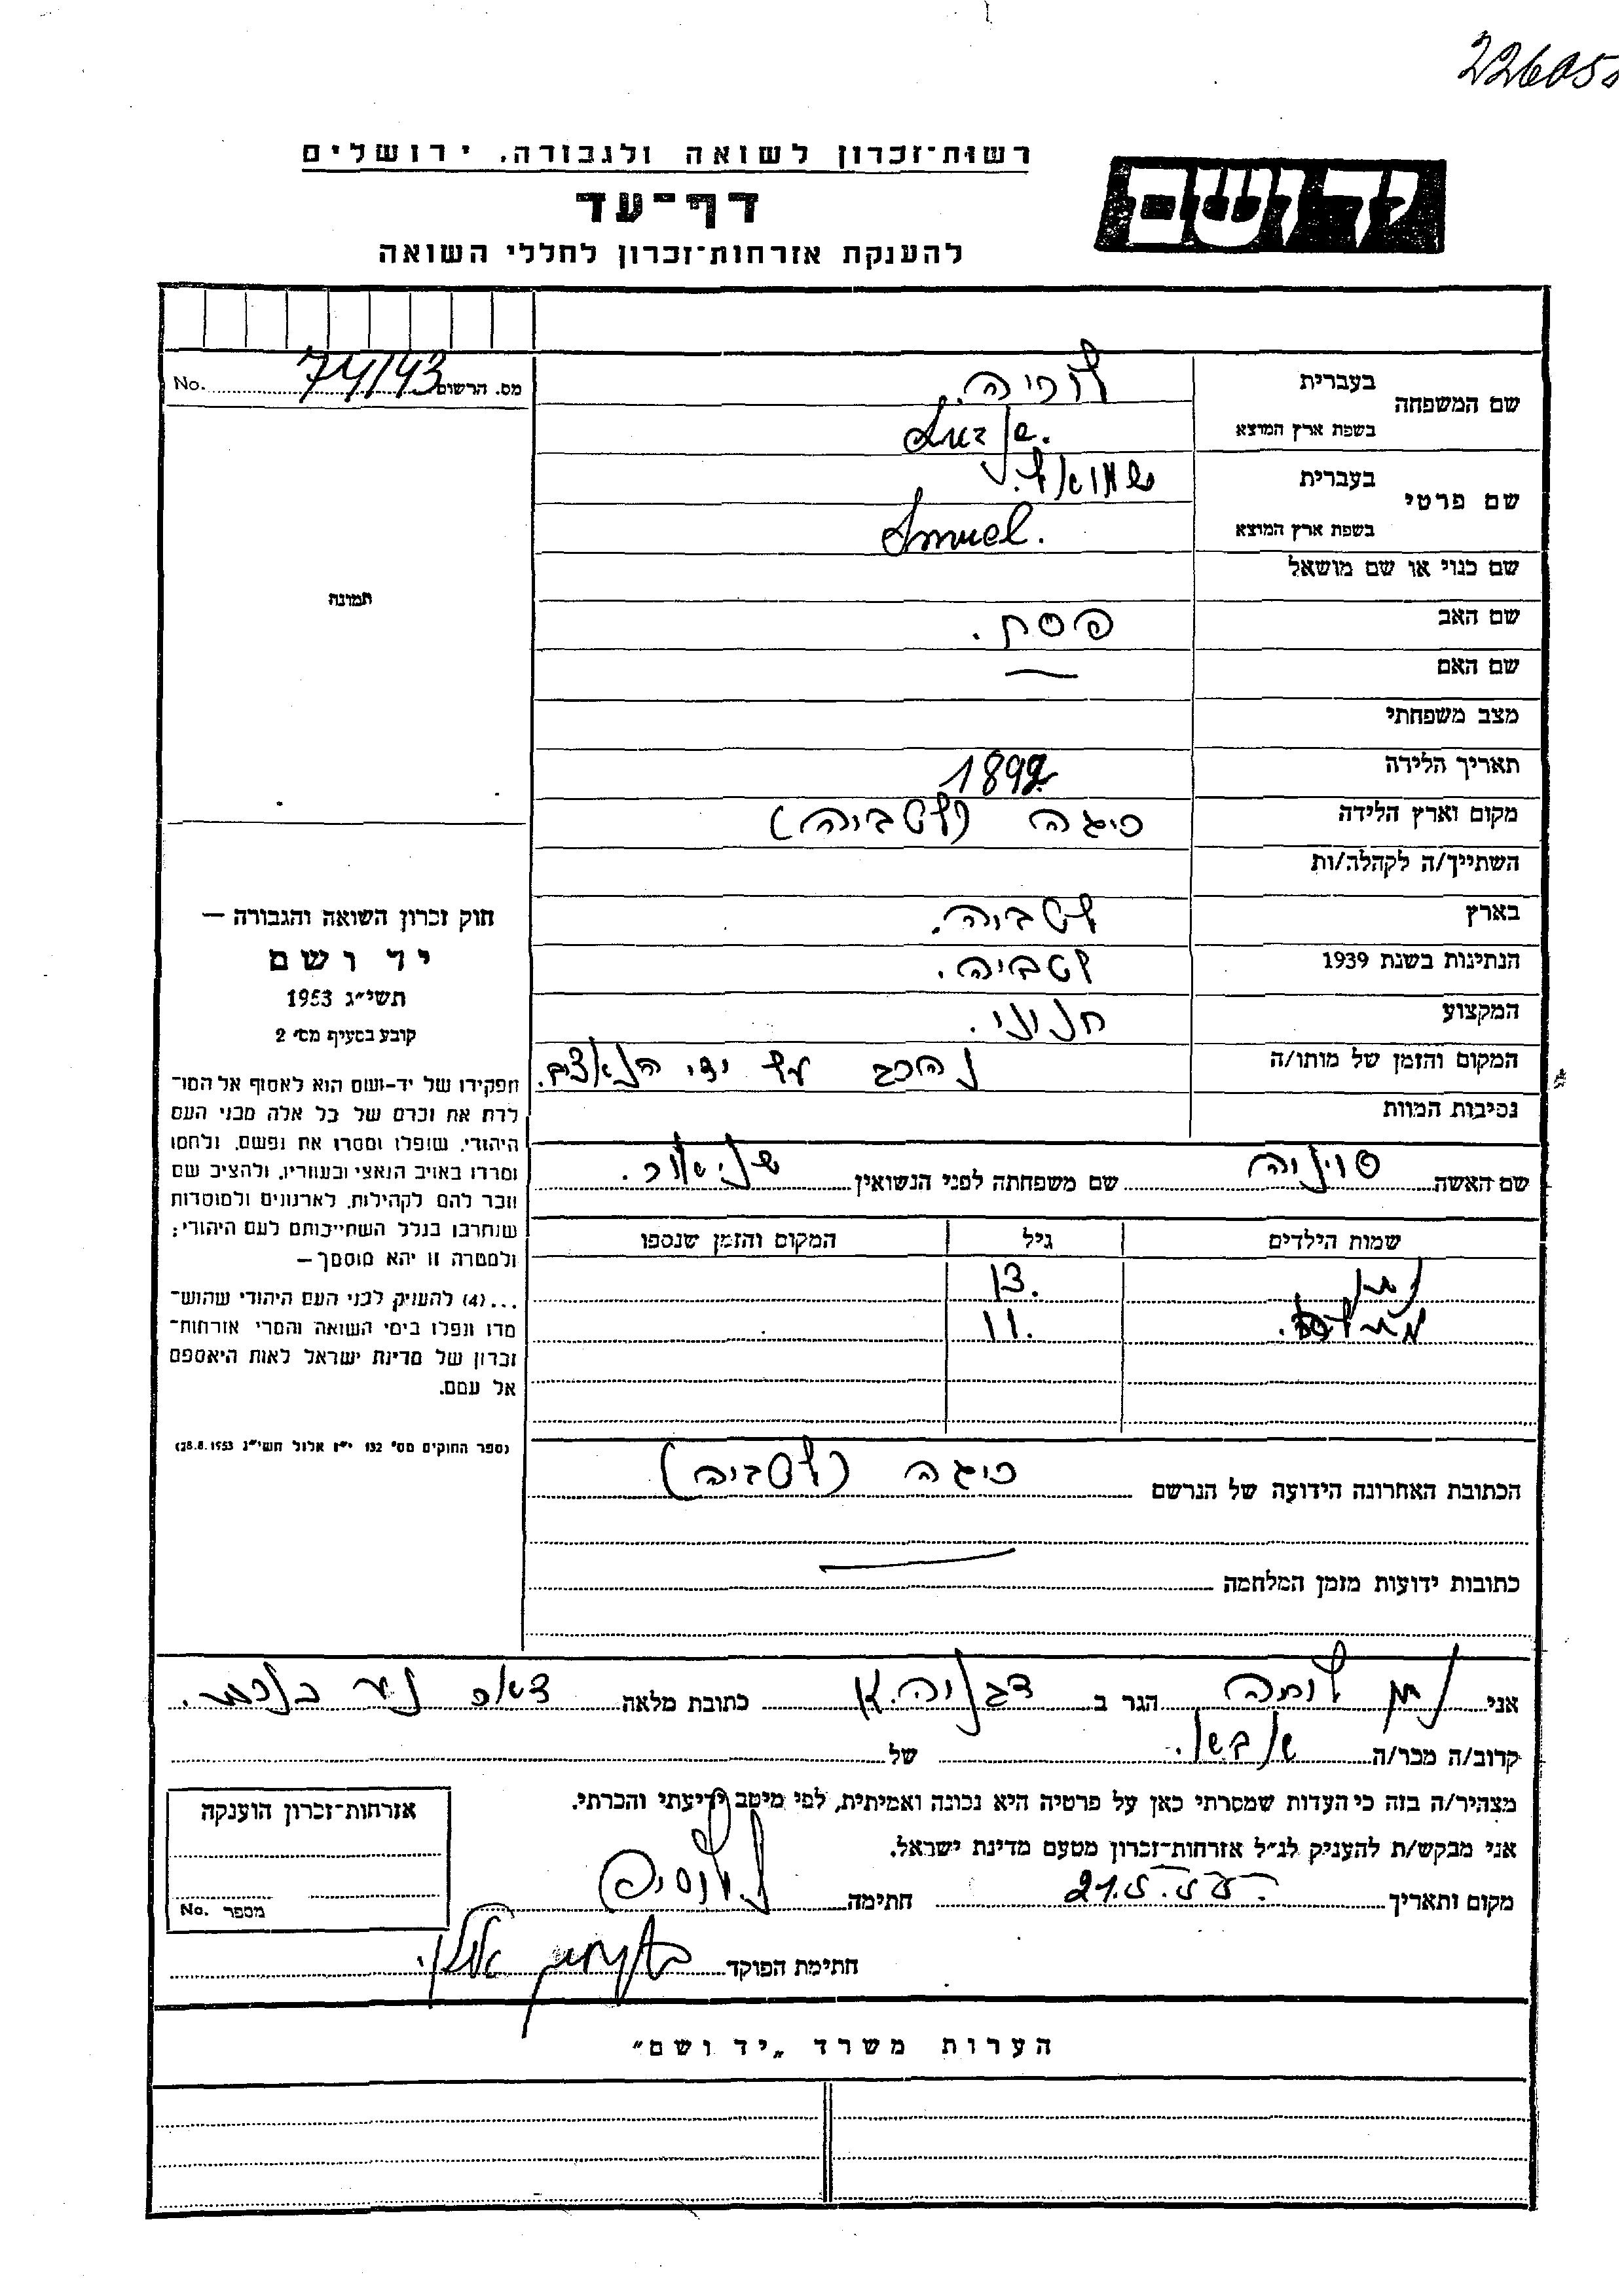 רשות־זכרון לשואה ולגבורה, ירושלים
יד ושם
דף־עד
להענקת אזרחות־זכרון לחללי השואה
מס. הרשום 74/43 No.
שם המשפחה
בעברית
בשפת ארץ המוצא
שם פרטי
בעברית שמואל.
בשפת ארץ המוצא Smuel.
שם כנוי או שם מושאל
שם האב פסח.
שם האם —
מצב משפחתי
תאריך הלידה
מקום וארץ הלידה ריגה (לטביה)
השתייך/ה לקהלה/ות
בארץ לטביה.
הנתינות בשנת 1939 לטביה.
המקצוע חנוני.
המקום והזמן של מותו/ה נהרג על ידי הנאצים.
נסיבות המוות
שם האשה סוניה שם משפחתה לפני הנשואין שניאור.
שמות הילדים גיל המקום והזמן שנספו
נתן 13.
11.
הכתובת האחרונה הידועה של הנרשם ריגה (לטביה)
כתובות ידועות מזמן המלחמה —
תמונה
חוק זכרון השואה והגבורה —
יד ושם
תשי״ג 1953
קובע בסעיף מס׳ 2
תפקידו של יד-ושם הוא לאסוף אל המו־
לדת את זכרם של כל אלה מבני העם
היהודי, שנפלו ומסרו את נפשם, נלחמו
ומרדו באויב הנאצי ובעוזריו, ולהציב שם
וזכר להם לקהילות, לארגונים ולמוסדות
שנחרבו בגלל השתייכותם לעם היהודי;
ולמטרה זו יהא מוסמך —
...(4) להעניק לבני העם היהודי שהוש־
מדו ונפלו בימי השואה והמרי אזרחות־
זכרון של מדינת ישראל לאות היאספם
אל עמם.
(ספר החוקים מס׳ 132 י״ז אלול תשי״ג 28.8.1953)
אני נתן הגר ב דגניה.א כתובת מלאה דאר
קרוב/ה מכר/ה של
מצהיר/ה בזה כי העדות שמסרתי כאן על פרטיה היא נכונה ואמיתית, לפי מיטב ידיעתי והכרתי.
אני מבקש/ת להעניק לנ״ל אזרחות־זכרון מטעם מדינת ישראל.
מקום ותאריך חתימה
חתימת הפוקד
אזרחות־זכרון הוענקה
מספר No.
הערות משרד „יד ושם״